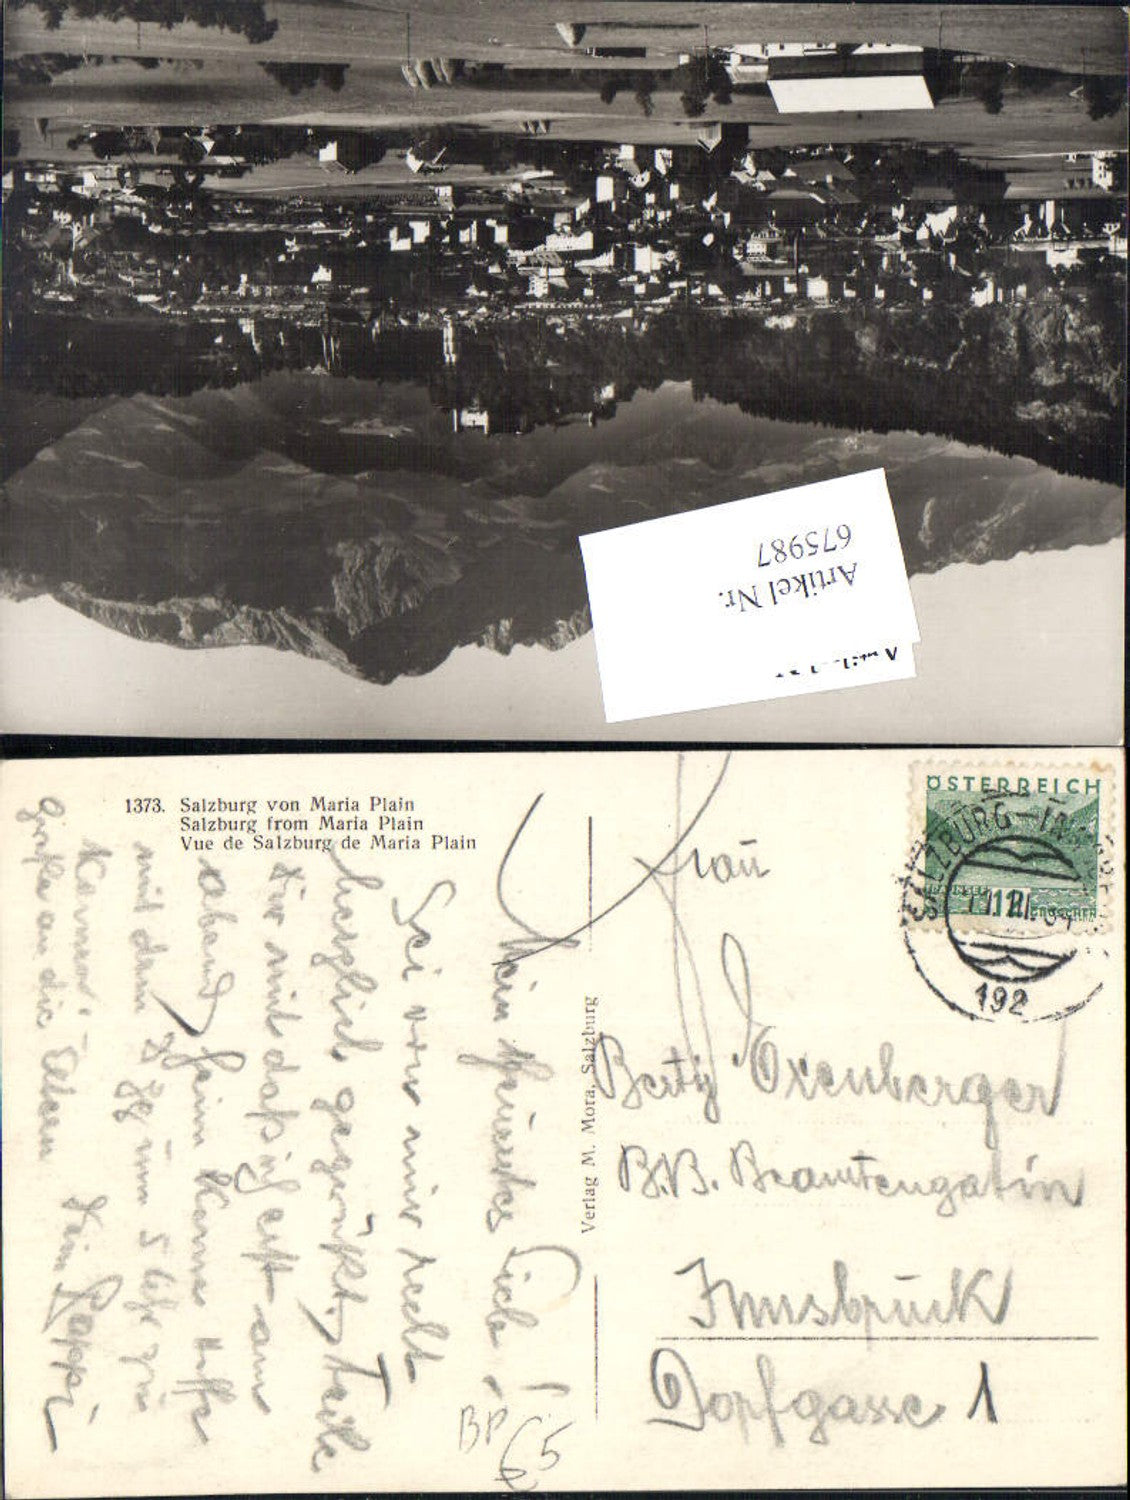 Artikel Nr.
675987
1373. Salzburg von Maria Plain
Salzburg from Maria Plain
Vue de Salzburg de Maria Plain
ÖSTERREICH
GROSCHEN
SALZBURG
192
Verlag M. Mora, Salzburg
Frau
Berty Oxenberger
B.B. Beamtengatin
Innsbruck
Dorfgasse 1
Mein
Sei von mir recht
herzlich gegrüßt, Teile
Dir mit daß ich erst am
abend heim Komme
mit dem Zug um 5 Uhr
an die Eltern Dein Pappi
BP
65